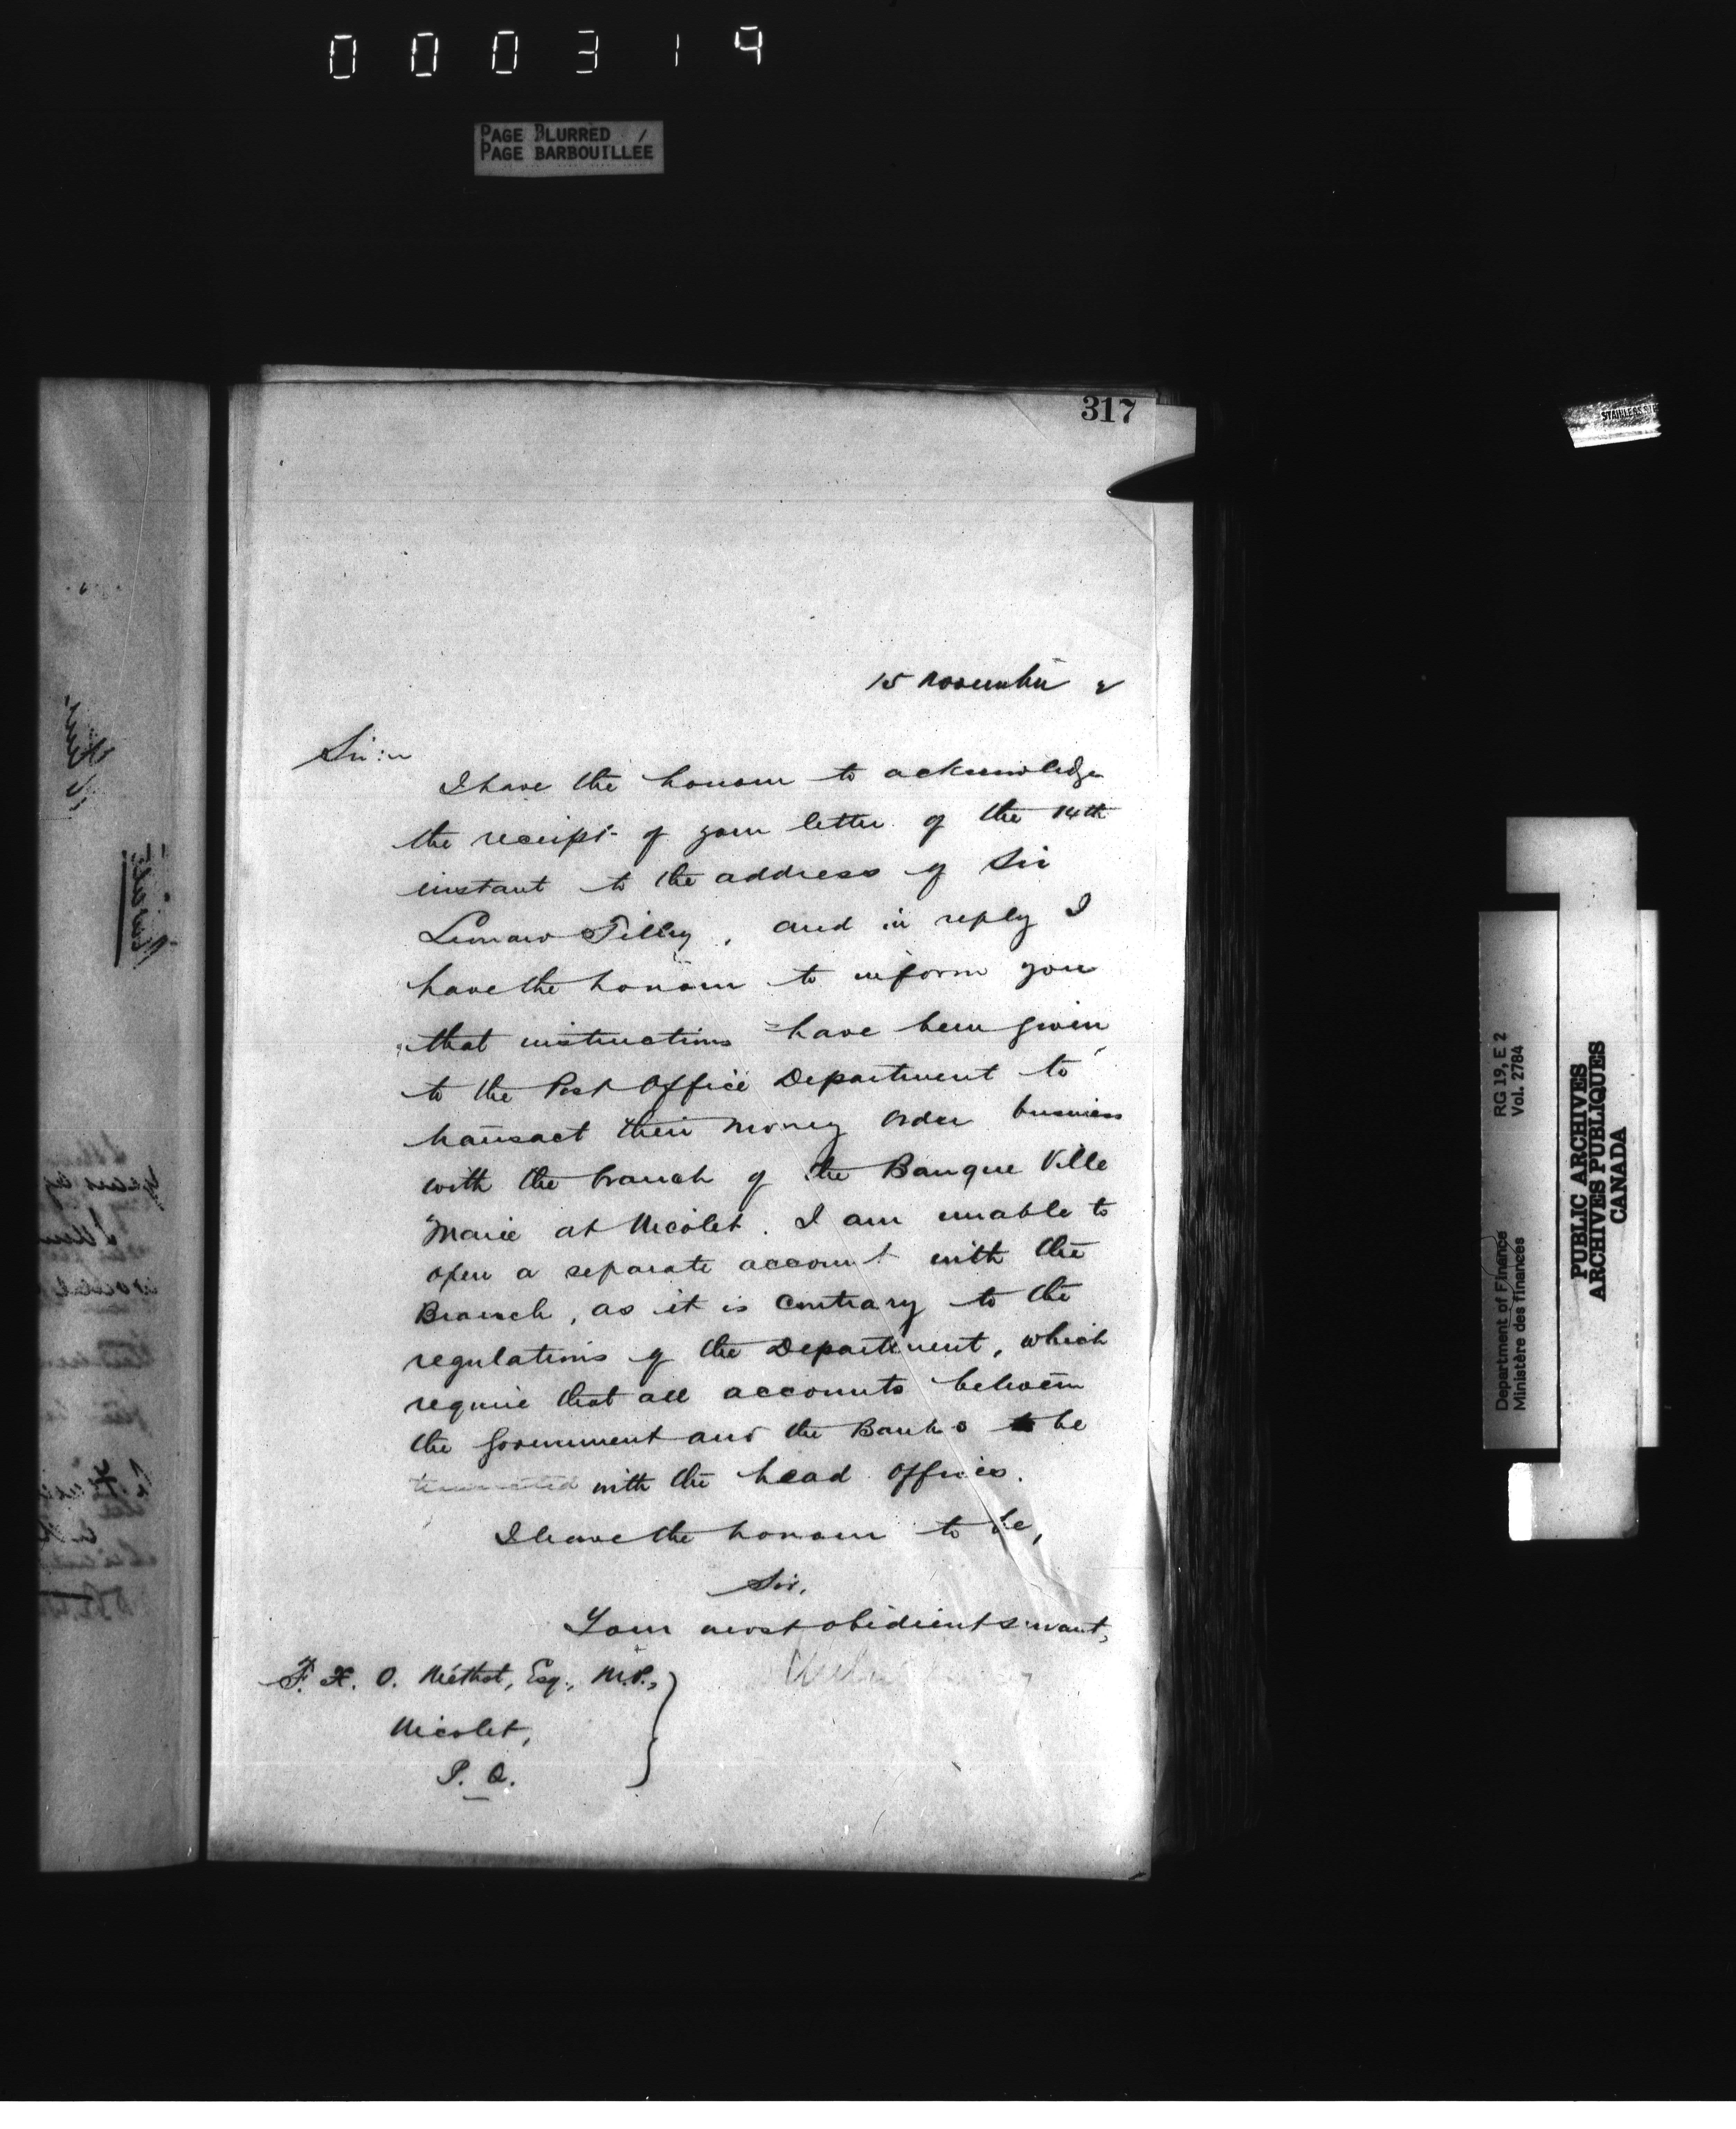 000319
PAGE BLURRED /
PAGE BARBOUILLÉE
317
15 November 2
Sir:
I have the honour to acknowledge
the receipt of your letter of the 14th
instant to the address of Sir
Leonard Tilley, and in reply I
have the honour to inform you
that instructions have been given
to the Post Office Department to
transact their money order business
with the branch of the Banque Ville
Marie at Nicolet. I am unable to
open a separate account with the
Branch, as it is contrary to the
regulations of the Department, which
require that all accounts between
the Government and the Banks to be
with the head offices.
I have the honour to be,
Sir,
Your most obedient servant,
F. X. O. Méthot, Esq., M.P.,
Nicolet,
P. Q.
STAINLESS STE
RG 19, E 2
Vol. 2784
Department of Finance
Ministère des finances
PUBLIC ARCHIVES
ARCHIVES PUBLIQUES
CANADA